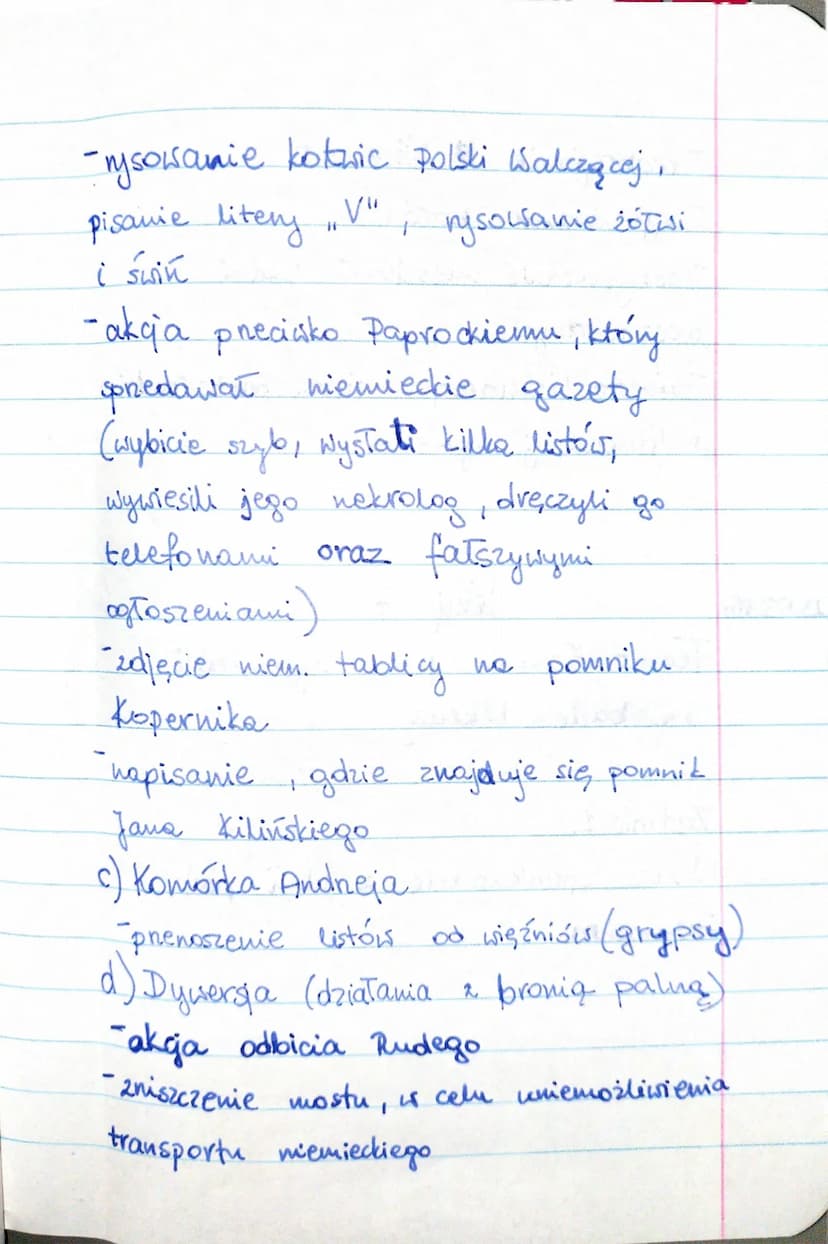 - rysowanie kotwic Polski Walczącej,
pisanie litery „V", rysowanie żółwi
i świń
- akcja przeciwko Paprockiemu, który
sprzedawał niemieckie gazety
(wybicie szyb, wysłali kilka listów,
wywiesili jego nekrolog, dręczyli go
telefonami oraz fałszywymi
ogłoszeniami)
- zdjęcie niem. tablicy na pomniku
Kopernika
- napisanie, gdzie znajduje się pomnik
Jana Kilińskiego
c) Komórka Andrzeja
- przenoszenie listów od więźniów (grypsy)
d) Dywersja (działania z bronią palną)
- akcja odbicia Rudego
- zniszczenie mostu, w celu uniemożliwienia
transportu niemieckiego